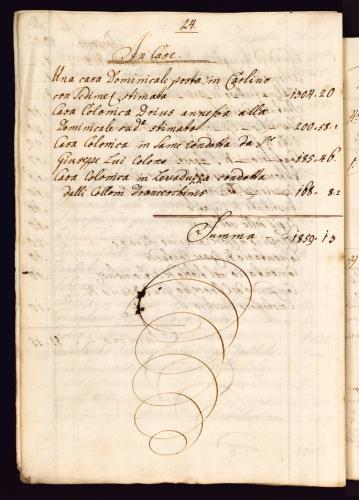 24.
In Case.
Una casa Dominicale posta in Carlino
con Sedime stimata 1304.20
Casa Colonica Drius annessa alla
Dominicale sud.ª stimata 200.58
Casa Colonica in condotta da
Giuseppe Zui Colono 185.46
Casa Colonica in condotta
dalli Colloni Franceschinis 168. 8
Summa 1859.13